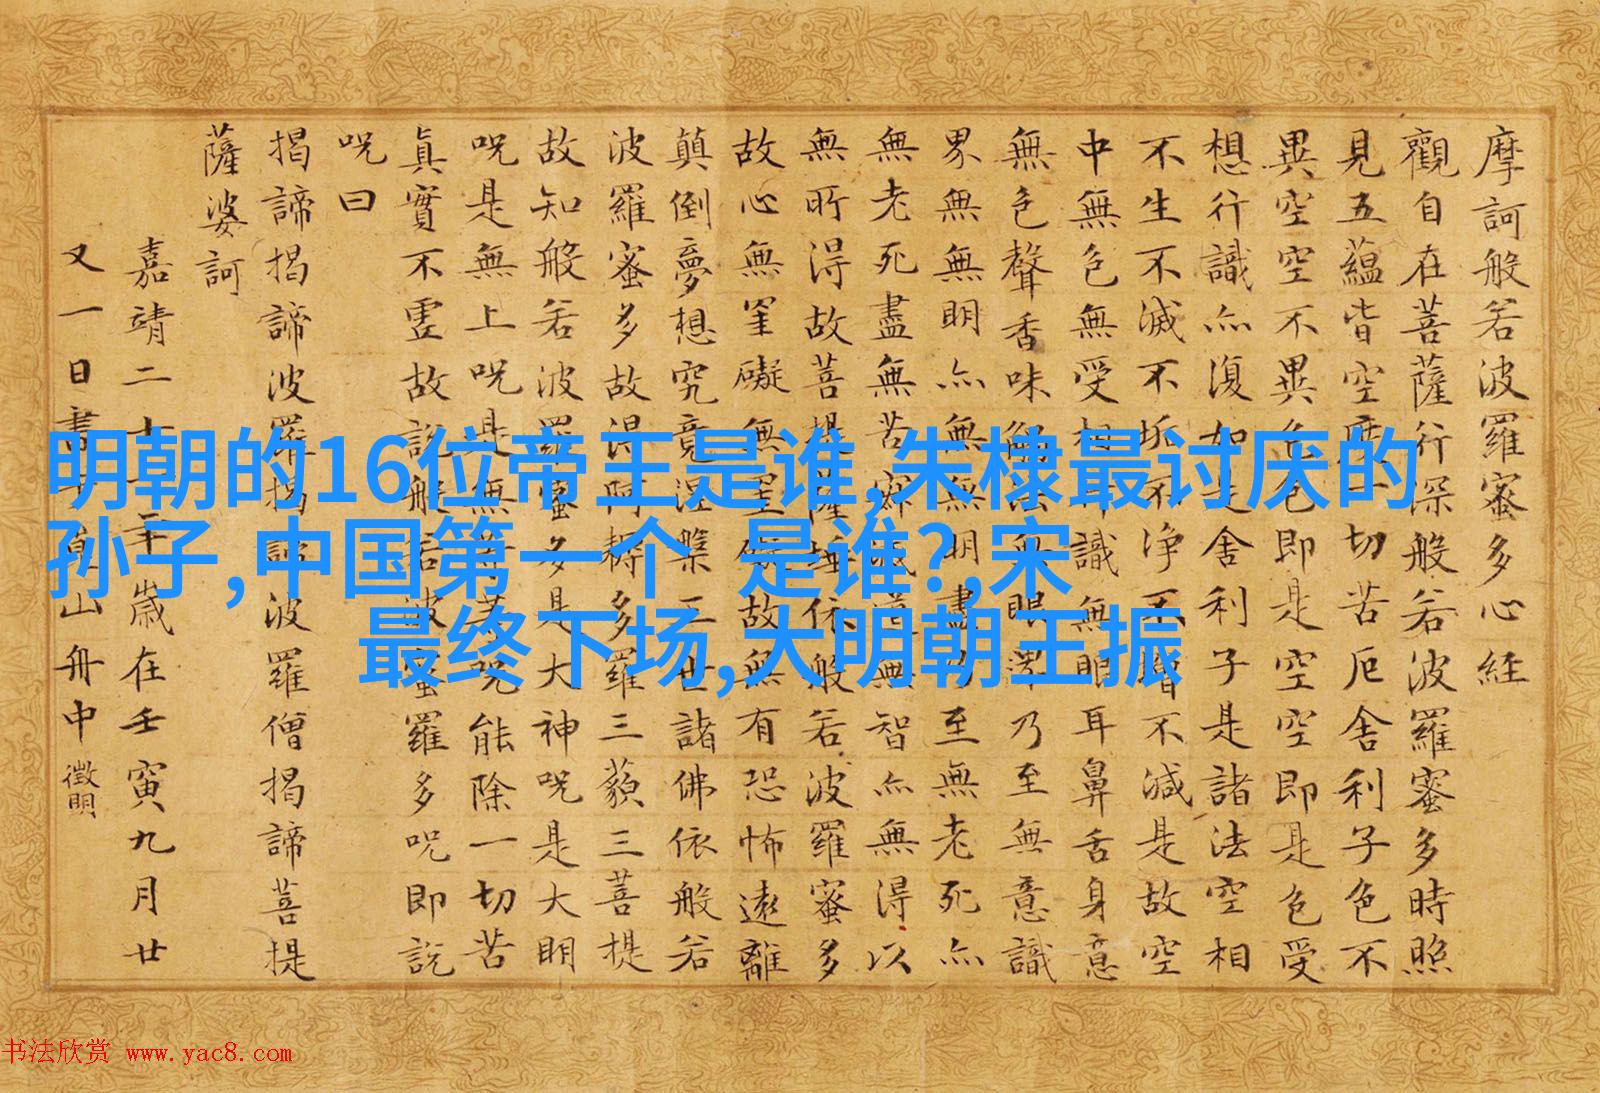 明朝的16位帝王是谁,朱棣最讨厌的
孙子,中国第一个 是谁?,宋
最终下场,大明朝王振
摩訶般若波羅蜜多心経
觀自在菩薩行深般若波羅蜜多時照
見五蘊皆空度一切苦厄舍利子色不
異空空不異色色即是空空即是色受
想行識亦復如是舍利子是諸法空相
不生不滅不垢不淨不增不減是故空
中無色無受想行識無眼耳鼻舌身意
無色聲香味觸法無眼界乃至無意識
界無無明亦無無明盡乃至無老死亦
無老死盡無苦寂滅道無智亦無得以
無所得故菩提薩埵依般若波羅蜜多
故心無罣礙無罣礙故無有恐怖遠離
顛倒夢想究竟涅槃三世諸佛依般若
波羅蜜多故得阿耨多羅三藐三菩提
故知般若波羅蜜多是大神呪是大明
呪是無上呪是無等等呪能除一切苦
真實不虛故説般若波羅蜜多呪即説
呪曰
揭諦揭諦波羅揭諦波羅僧揭諦菩提
薩婆訶
嘉靖二十一年歲在壬寅九月廿
又一日書于崑山舟中 徵明
书法欣赏 www.yac8.com